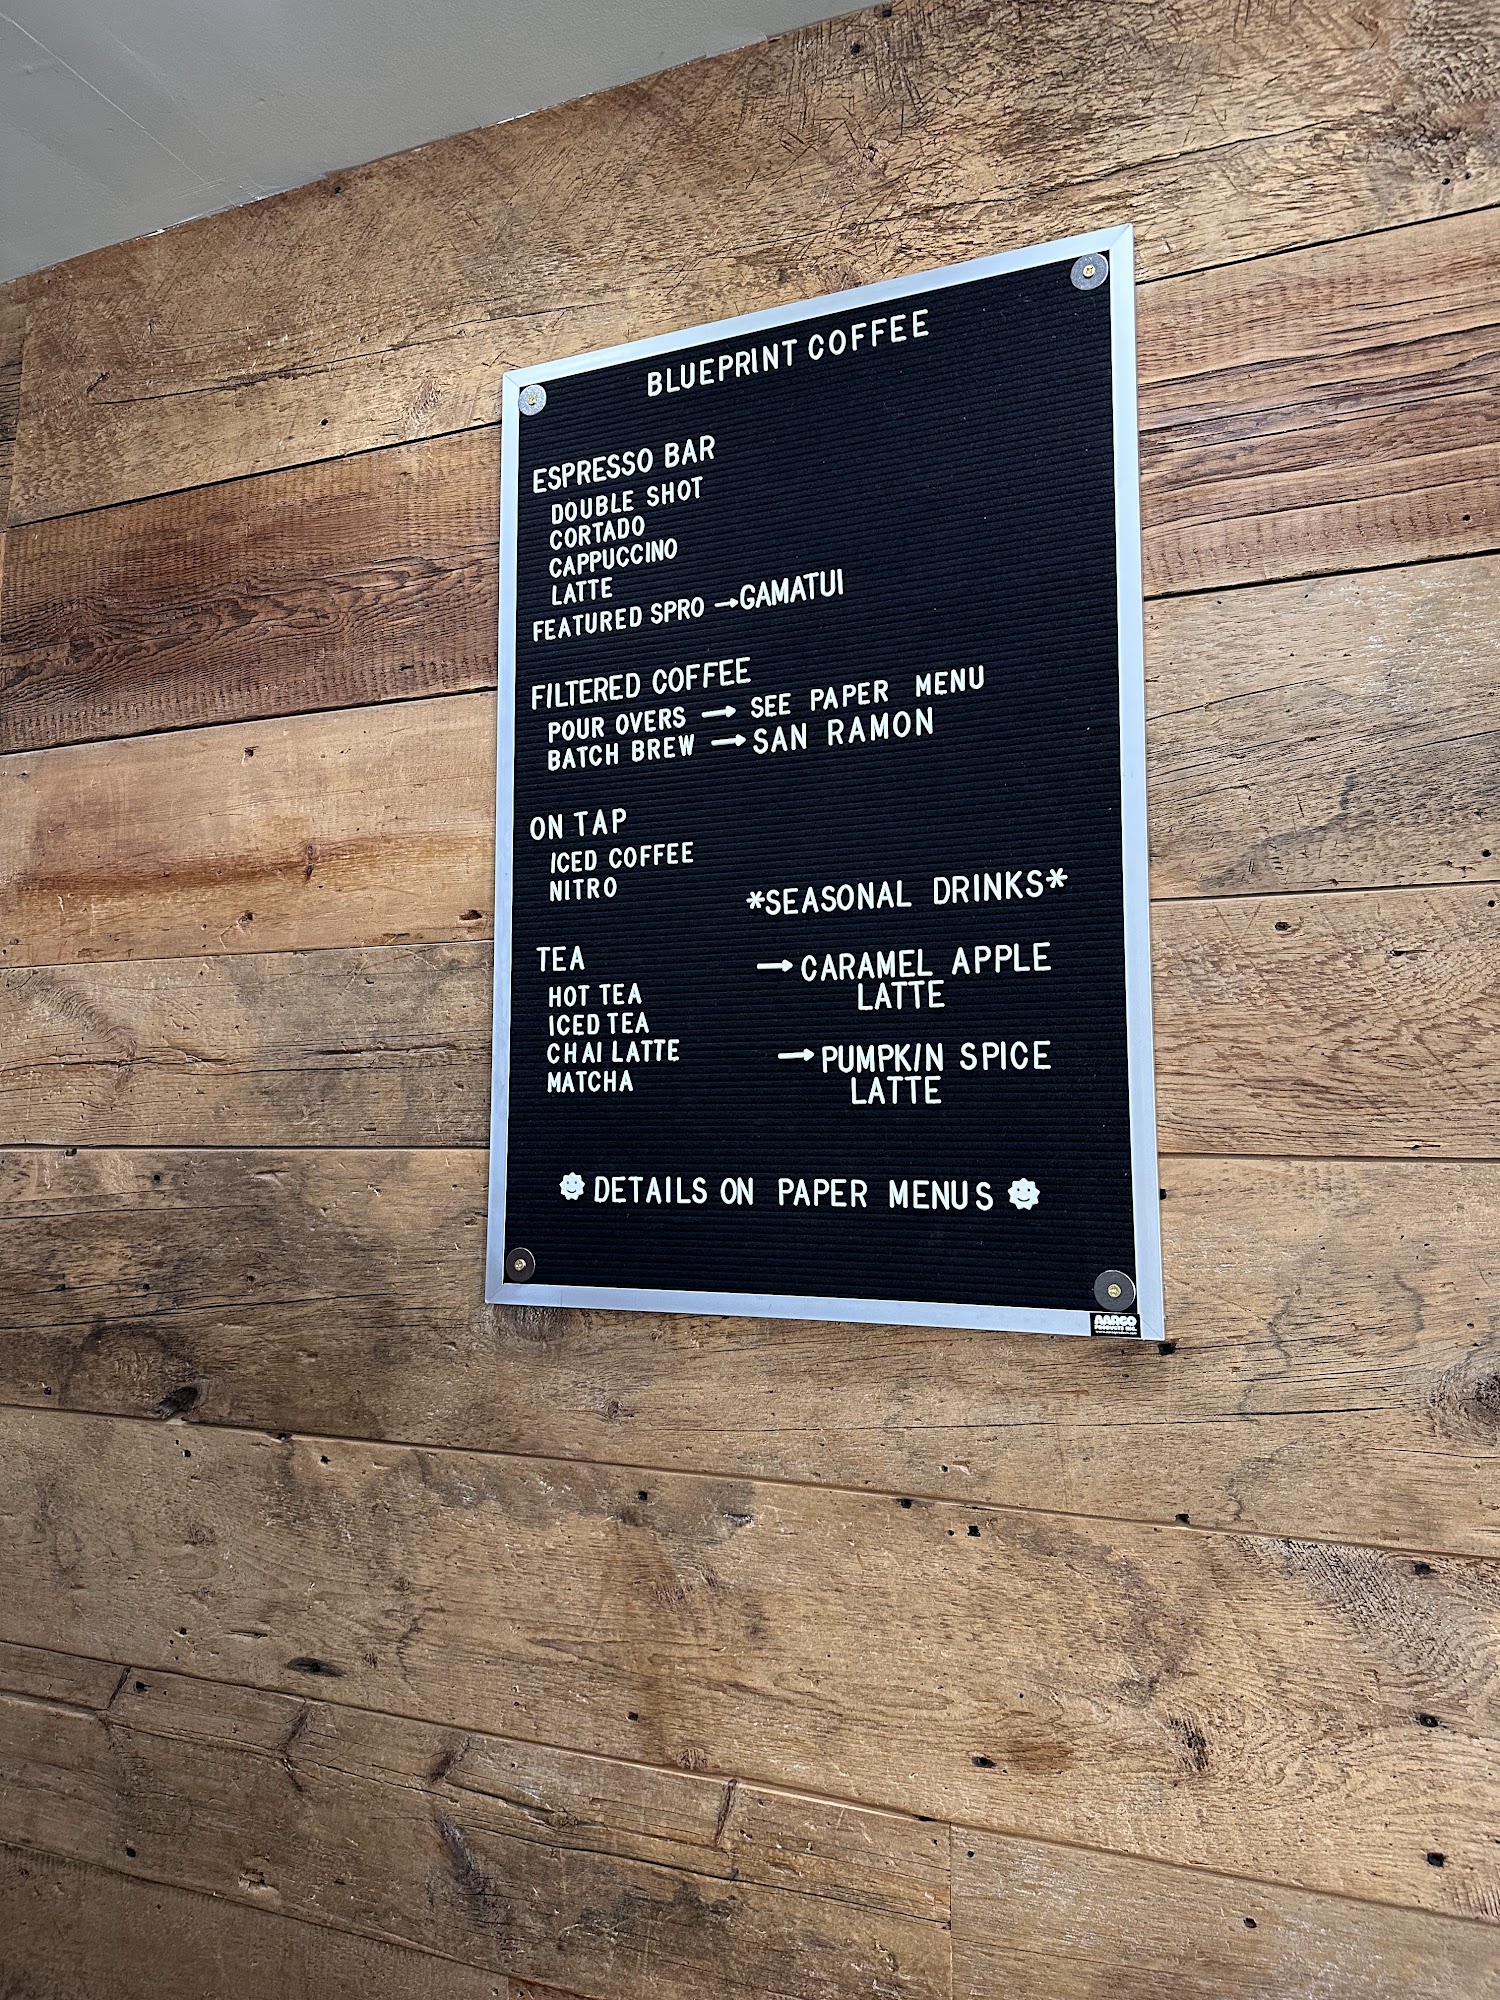 BLUEPRINT COFFEE
ESPRESSO BAR
DOUBLE SHOT
CORTADO
CAPPUCCINO
LATTE
FEATURED SPRO → GAMATUI
FILTERED COFFEE
POUR OVERS → SEE PAPER MENU
BATCH BREW → SAN RAMON
ON TAP
ICED COFFEE
NITRO
TEA
HOT TEA
ICED TEA
CHAI LATTE
MATCHA
*SEASONAL DRINKS*
→ CARAMEL APPLE
LATTE
→ PUMPKIN SPICE
LATTE
DETAILS ON PAPER MENUS
AARCO
PRODUCTS INC.